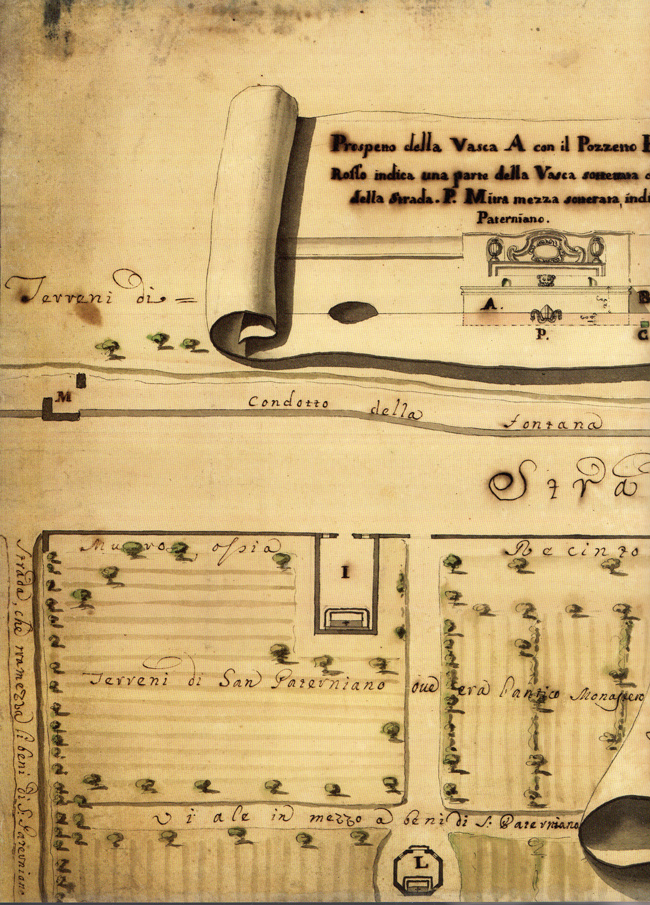 Prospetto della Vasca A con il Pozzetto
Rosso indica una parte della Vasca sotterrata
della strada. P. Mitra mezza sotterrata, indi
Paterniano.
A.
B
P.
C
Terreni di =
M
Condotto della Fontana
Stra
Muro ossia Recinto
I
Terreni di San Paterniano ove era l'antico Monastero
Viale in mezzo a beni di S. Paterniano
L
Strada, che tramezza li beni di S. Paterniano